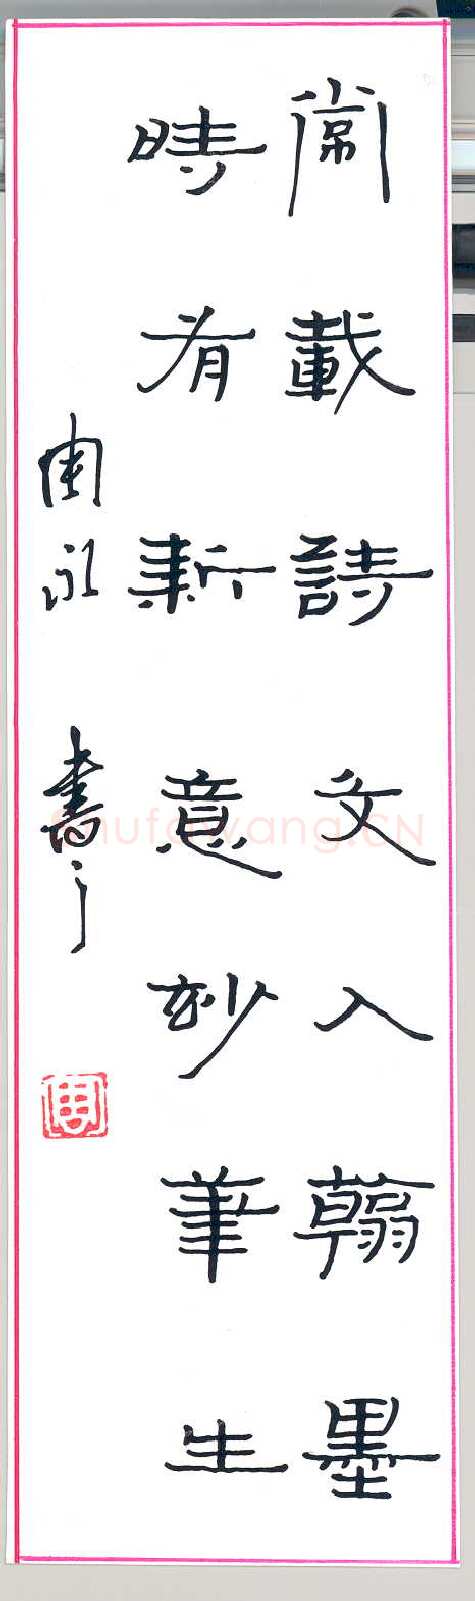 常載詩文入翰墨
時有新意玅筆生
周永書
周
shufawang.CN